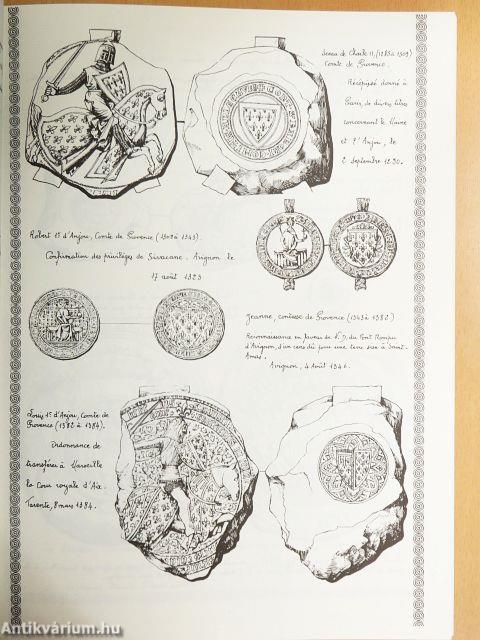 Sceau de Charles II, (1285 à 1309)
Comte de Provence.
Récépissé donné à
Paris, de divers titres
concernant le Maine
et l'Anjou, le
2 septembre 1290.
Robert 1er d'Anjou, Comte de Provence (1309 à 1343).
Confirmation des privilèges de Silvacane. Avignon le
17 août 1323
Jeanne, comtesse de Provence (1343 à 1382)
Reconnaissance en faveur de N.D. du Pont Rompu
d'Avignon, d'un cens dû pour une terre sise à Saint-
Avignon, 4 Août 1346.
Louis 1er d'Anjou, Comte de
Provence (1382 à 1384).
Ordonnance de
transférer à Marseille
la Cour royale d'Aix.
Tarente, 8 mars 1384.
Antikvárium.hu